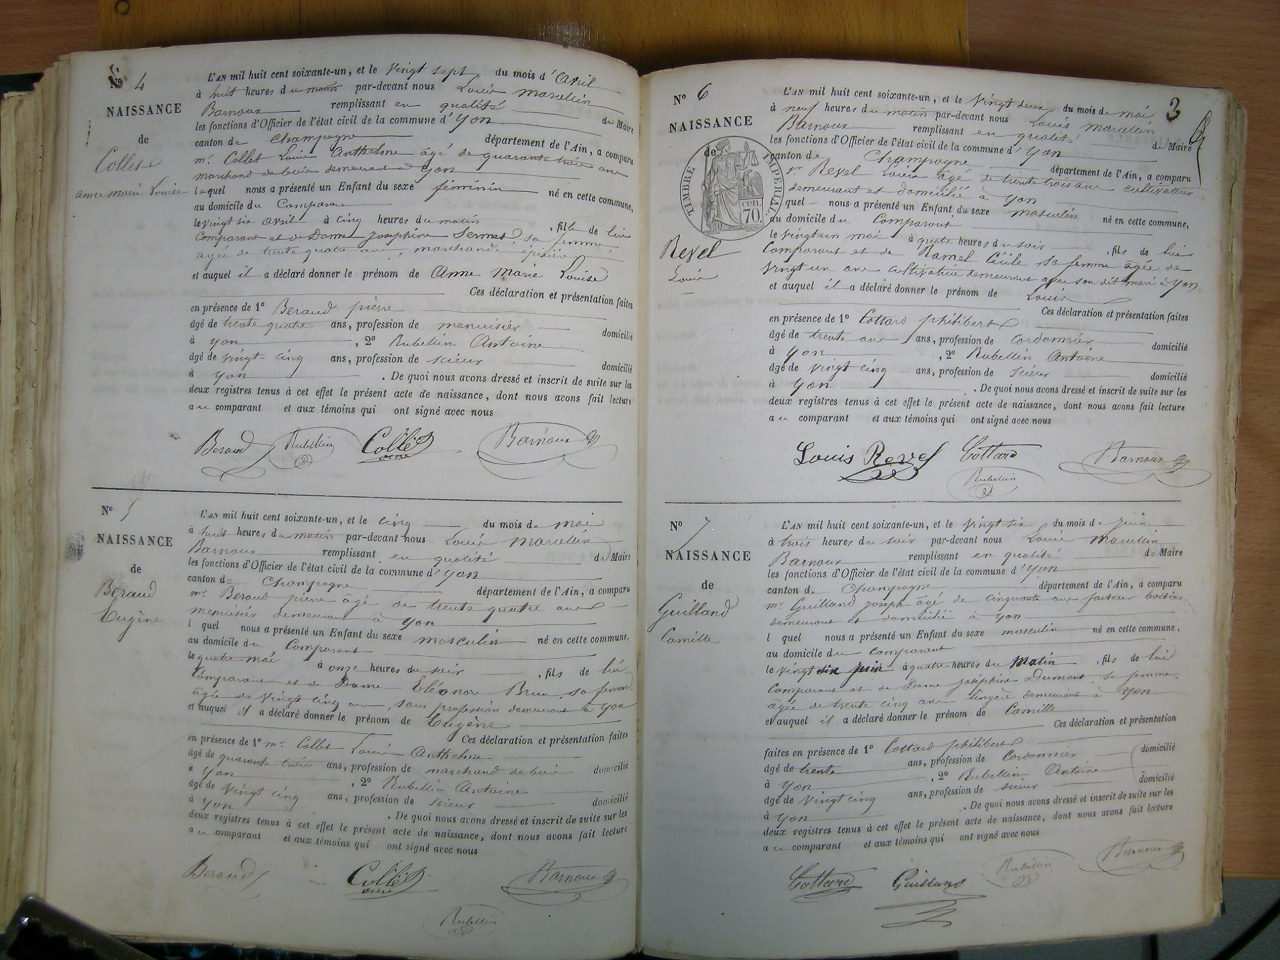 N° 4
NAISSANCE
de
Collet
anne marie Louise
L'AN mil huit cent soixante-un, et le vingt sept du mois d'avril
à huit heures du matin par-devant nous Louis marcellin
Barnoux remplissant en qualité de Maire
les fonctions d'Officier de l'état civil de la commune d'yon
canton de Champagne département de l'Ain, a comparu
mr Collet Louis Anthelme âgé de quarante trois ans
marchand de bois demeurant à yon
lequel nous a présenté un Enfant du sexe féminin né en cette commune,
au domicile du Comparant
le vingt six avril à cinq heures du matin, fille de lui
Comparant et de Dame Joséphine sa femme
agée de trente quatre ans marchande
et auquel il a déclaré donner le prénom de Anne Marie Louise
Ces déclaration et présentation faites
en présence de 1° Beraud pierre
âgé de trente quatre ans, profession de menuisier domicilié
à yon, 2° Rubellin Antoine
âgé de vingt cinq ans, profession de scieur domicilié
à yon. De quoi nous avons dressé et inscrit de suite sur les
deux registres tenus à cet effet le présent acte de naissance, dont nous avons fait lecture
au comparant et aux témoins qui ont signé avec nous
Beraud Rubellin Collet Barnoux
N° 5
NAISSANCE
de
Béraud
Eugène
L'AN mil huit cent soixante-un, et le cinq du mois de mai
à huit heures du matin par-devant nous Louis marcellin
Barnoux remplissant en qualité de Maire
les fonctions d'Officier de l'état civil de la commune d'yon
canton de Champagne département de l'Ain, a comparu
mr Beraud pierre âgé de trente quatre ans
menuisier demeurant à yon
lquel nous a présenté un Enfant du sexe masculin né en cette commune,
au domicile du Comparant
le quatre mai à onze heures du soir, fils de lui
Comparant et de Dame Eléonor Brun sa femme
âgée de vingt cinq ans, sans profession demeurant à yon
et auquel il a déclaré donner le prénom de Eugène
Ces déclaration et présentation faites
en présence de 1° mr Collet Louis Anthelme
âgé de quarante trois ans, profession de marchand de bois domicilié
à yon, 2° Rubellin Antoine
âgé de vingt cinq ans, profession de scieur domicilié
à yon. De quoi nous avons dressé et inscrit de suite sur les
deux registres tenus à cet effet le présent acte de naissance, dont nous avons fait lecture
au comparant et aux témoins qui ont signé avec nous
Beraud Collet Barnoux
Rubellin
3
N° 6
NAISSANCE
de
TIMBRE IMPERIAL
70
Revel
Louis
L'AN mil huit cent soixante-un, et le vingt deux du mois de mai
à neuf heures du matin par-devant nous Louis marcellin
Barnoux remplissant en qualité de Maire
les fonctions d'Officier de l'état civil de la commune d'yon
canton de Champagne département de l'Ain, a comparu
sr Revel Louis âgé de trente trois ans cultivateur
demeurant et domicilié à yon
quel nous a présenté un Enfant du sexe masculin né en cette commune,
au domicile du Comparant
le vingt un mai à quatre heures du soir, fils de lui
Comparant et de Ramel Cécile sa femme âgée de
vingt un ans cultivatrice demeurant avec son dit mari à yon
et auquel il a déclaré donner le prénom de Louis
Ces déclaration et présentation faites
en présence de 1° Cottard philibert
âgé de trente ans, profession de cordonnier domicilié
à yon, 2° Rubellin Antoine
âgé de vingt cinq ans, profession de scieur domicilié
à yon. De quoi nous avons dressé et inscrit de suite sur les
deux registres tenus à cet effet le présent acte de naissance, dont nous avons fait lecture
au comparant et aux témoins qui ont signé avec nous
Louis Revel Cottard Barnoux
Rubellin
N° 7
NAISSANCE
de
Guilland
Camille
L'AN mil huit cent soixante-un, et le vingt six du mois de juin
à trois heures du soir par-devant nous Louis Marcellin
Barnoux remplissant en qualité de Maire
les fonctions d'Officier de l'état civil de la commune d'yon
canton de Champagne département de l'Ain, a comparu
mr Guilland joseph âgé de cinquante ans facteur
demeurant et domicilié à yon
l quel nous a présenté un Enfant du sexe masculin né en cette commune,
au domicile du comparant
le vingt six juin à quatre heures du matin, fils de lui
Comparant et de Dame joséphine Dumont sa femme
agée de trente cinq ans lingère demeurant à yon
et auquel il a déclaré donner le prénom de Camille
Ces déclaration et présentation
faites en présence de 1° Cottard philibert
âgé de trente ans, profession de Cordonnier domicilié
à yon, 2° Rubellin Antoine
âgé de vingt cinq ans, profession de scieur domicilié
à yon. De quoi nous avons dressé et inscrit de suite sur les
deux registres tenus à cet effet le présent acte de naissance, dont nous avons fait lecture
au comparant et aux témoins qui ont signé avec nous
Cottard Guilland Rubellin Barnoux